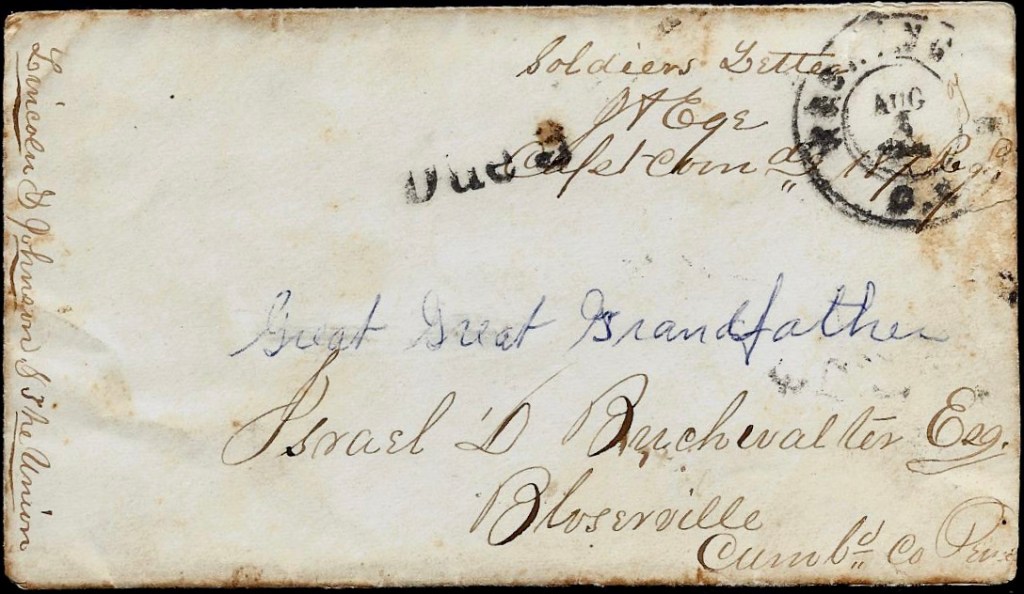 Soldiers Letter
J A Ege
Capt Com d 187 Reg
WASHING
AUG
5
D.C.
Due 3
Great Great Grandfather
Israel D Buchwalter Esq.
Bloserville
Cumbd Co Penn
Lincoln & Johnson & The Union